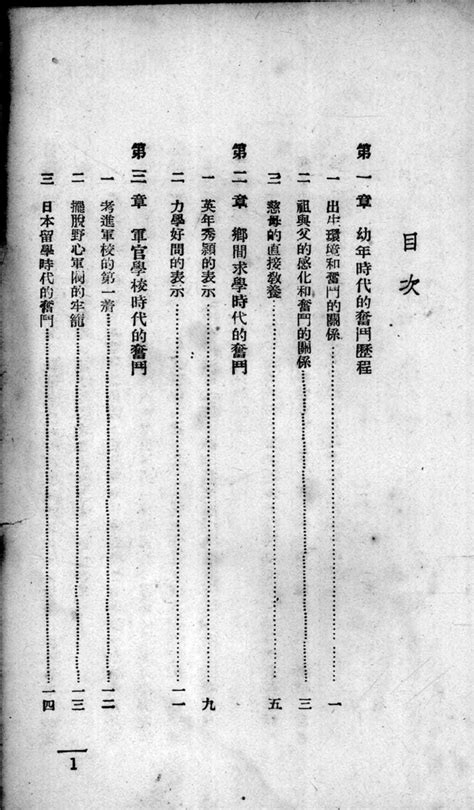 目次
第一章　幼年時代的奮鬥歷程
一　出生環境和奮鬥的關係……一
二　祖與父的感化和奮鬥的關係……三
三　慈母的直接教養……五
第二章　鄉間求學時代的奮鬥
一　英年秀穎的表示……九
二　力學好問的表示……一一
第三章　軍官學校時代的奮鬥
一　考進軍校的第一着……一二
二　擺脫野心軍閥的牢籠……一三
三　日本留學時代的奮鬥……一四
1